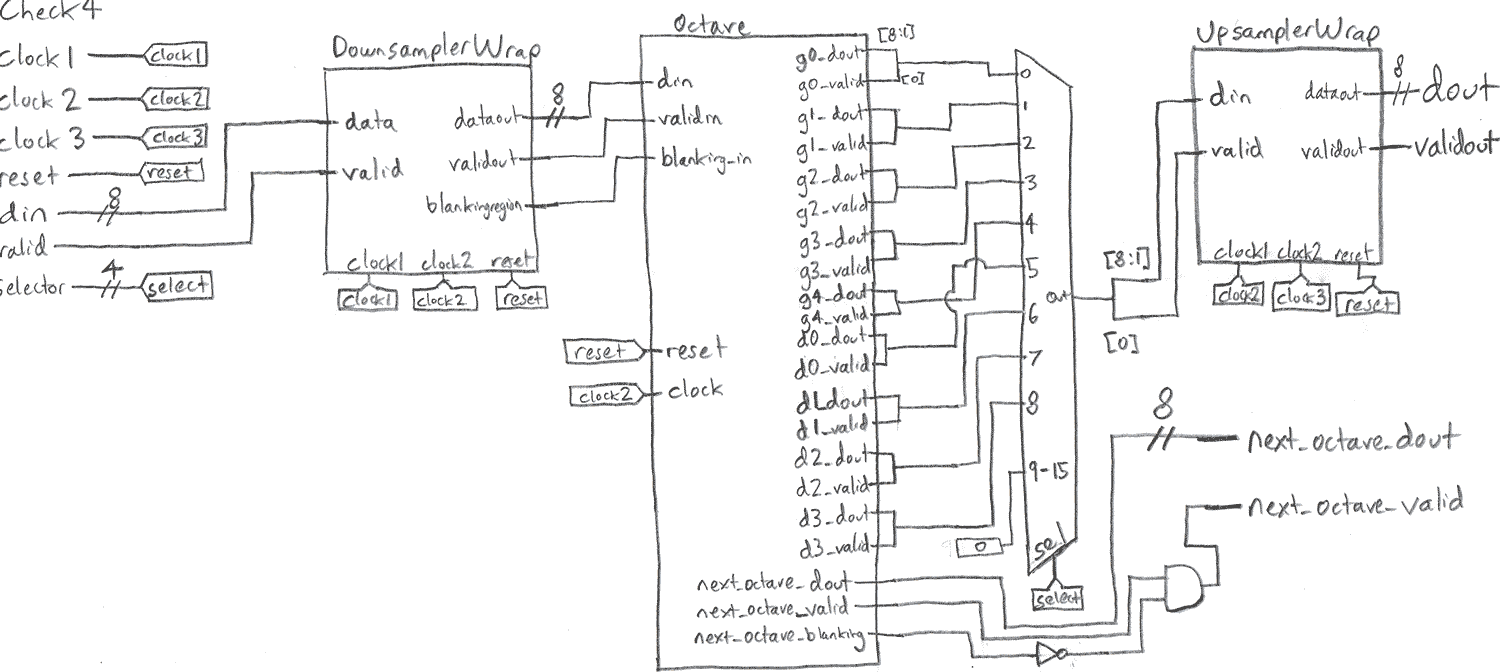 Check 4
Clock 1
clock1
clock 2
clock2
clock 3
clock3
reset
reset
din
8
valid
Selector
4
select
DownsamplerWrap
data
valid
dataout
validout
blankingregion
clock1 clock2 reset
clock1
clock2
reset
8
Octave
din
validin
blanking_in
reset
reset
clock2
clock
g0_dout
g0_valid
g1_dout
g1_valid
g2_dout
g2_valid
g3_dout
g3_valid
g4_dout
g4_valid
d0_dout
d0_valid
d1_dout
d1_valid
d2_dout
d2_valid
d3_dout
d3_valid
next_octave_dout
next_octave_valid
next_octave_blanking
[8:1]
[0]
0
1
2
3
4
5
6
7
8
9-15
0
out
sel
select
[8:1]
[0]
UpsamplerWrap
din
valid
dataout
validout
clock1 clock2 reset
clock2
clock3
reset
8
dout
validout
8
next_octave_dout
next_octave_valid